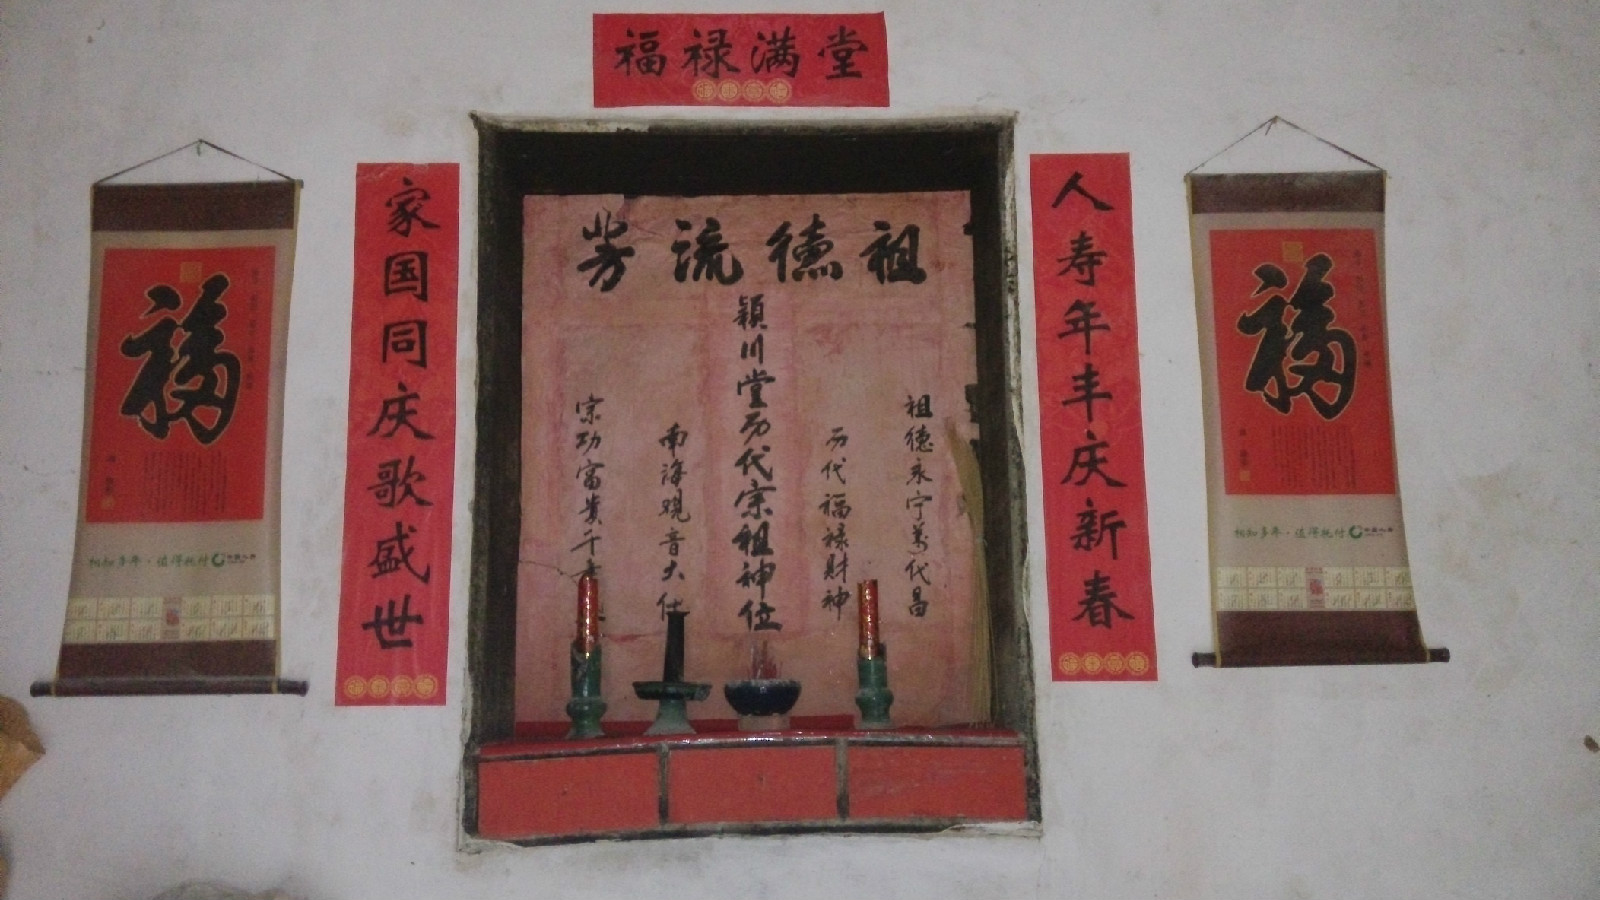 福禄满堂
人寿年丰庆新春
家国同庆歌盛世
祖德流芳
祖德永宁万代昌
历代福禄财神
颖川堂历代宗祖神位
南海观音大仕
宗功富贵千
福
相知多年·值得托付
福
相知多年·值得托付